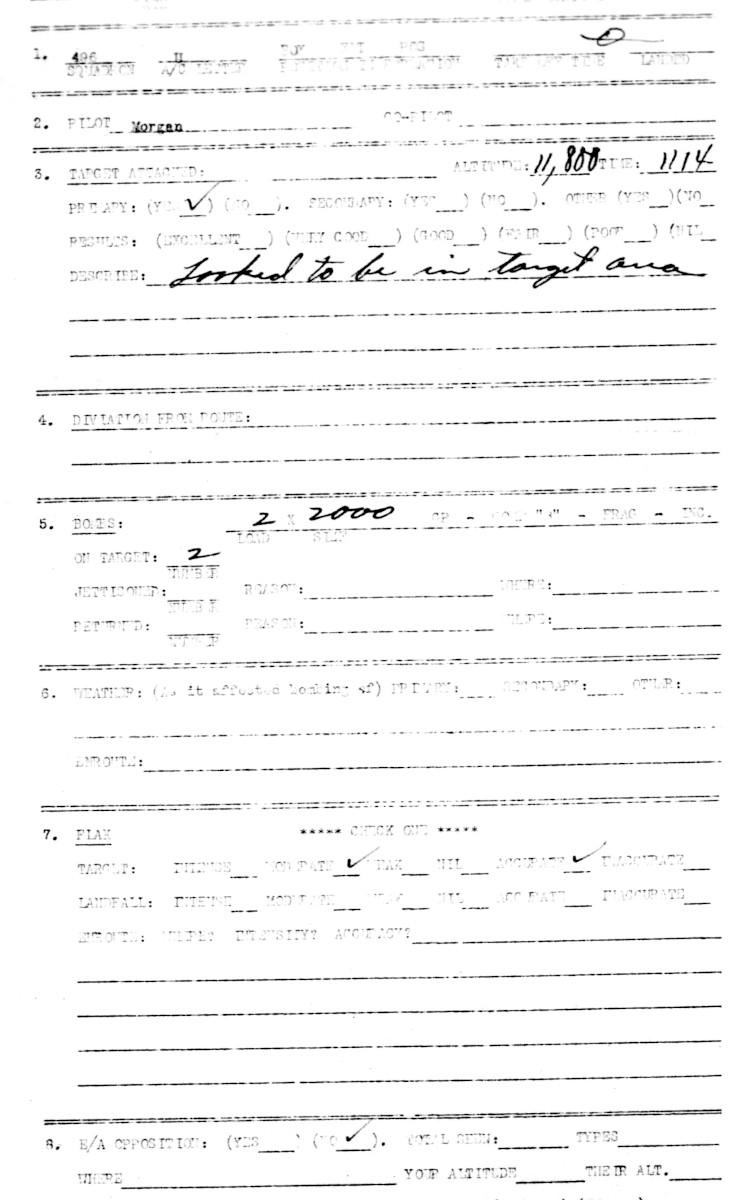 1. 496 H BOX POS
SQUADRON A/C LETTER TAKE OFF TIME LANDED
2. PILOT Morgan CO-PILOT
3. TARGET ATTACKED: ALTITUDE: 11,800 TIME: 1114
PRIMARY: (YES ✓) (NO ). SECONDARY: (YES ) (NO ). OTHER (YES )(NO
RESULTS: (EXCELLENT ) (VERY GOOD ) (GOOD ) (FAIR ) (POOR ) (NIL
DESCRIBE: Looked to be in target area
4. DIVIATION FROM ROUTE:
5. BOMBS: 2 X 2000 GP - - FRAG - INC.
LOAD SIZE
ON TARGET: 2
NUMBER
JETTISONED: REASON: WHERE:
NUMBER
RETURNED: REASON: WHERE:
NUMBER
6. WEATHER: (As it affected bombing of) PRIMARY: SECONDARY: OTHER:
ENROUTE:
7. FLAK ***** CHECK ONE *****
TARGET: INTENSE MODERATE ✓ WEAK NIL ACCURATE ✓ INACCURATE
LANDFALL: INTENSE MODERATE WEAK NIL ACCURATE INACCURATE
ENROUTE: WHERE? INTENSITY? ACCURACY?
8. E/A OPPOSITION: (YES ) (NO ✓ ). TOTAL SEEN: TYPES
WHERE YOUR ALTITUDE THEIR ALT.